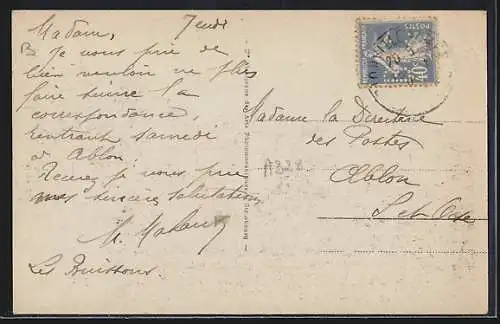 Madame, Jeudi
Je vous prie de
bien vouloir ne plus
faire suivre la
correspondance,
rentrant samedi
à Ablon.
Recevez je vous prie
mes sincères salutations
M.
Les Buissons.
Madame la Directrice
des Postes
Ablon
S et Oise
A328
POSTES